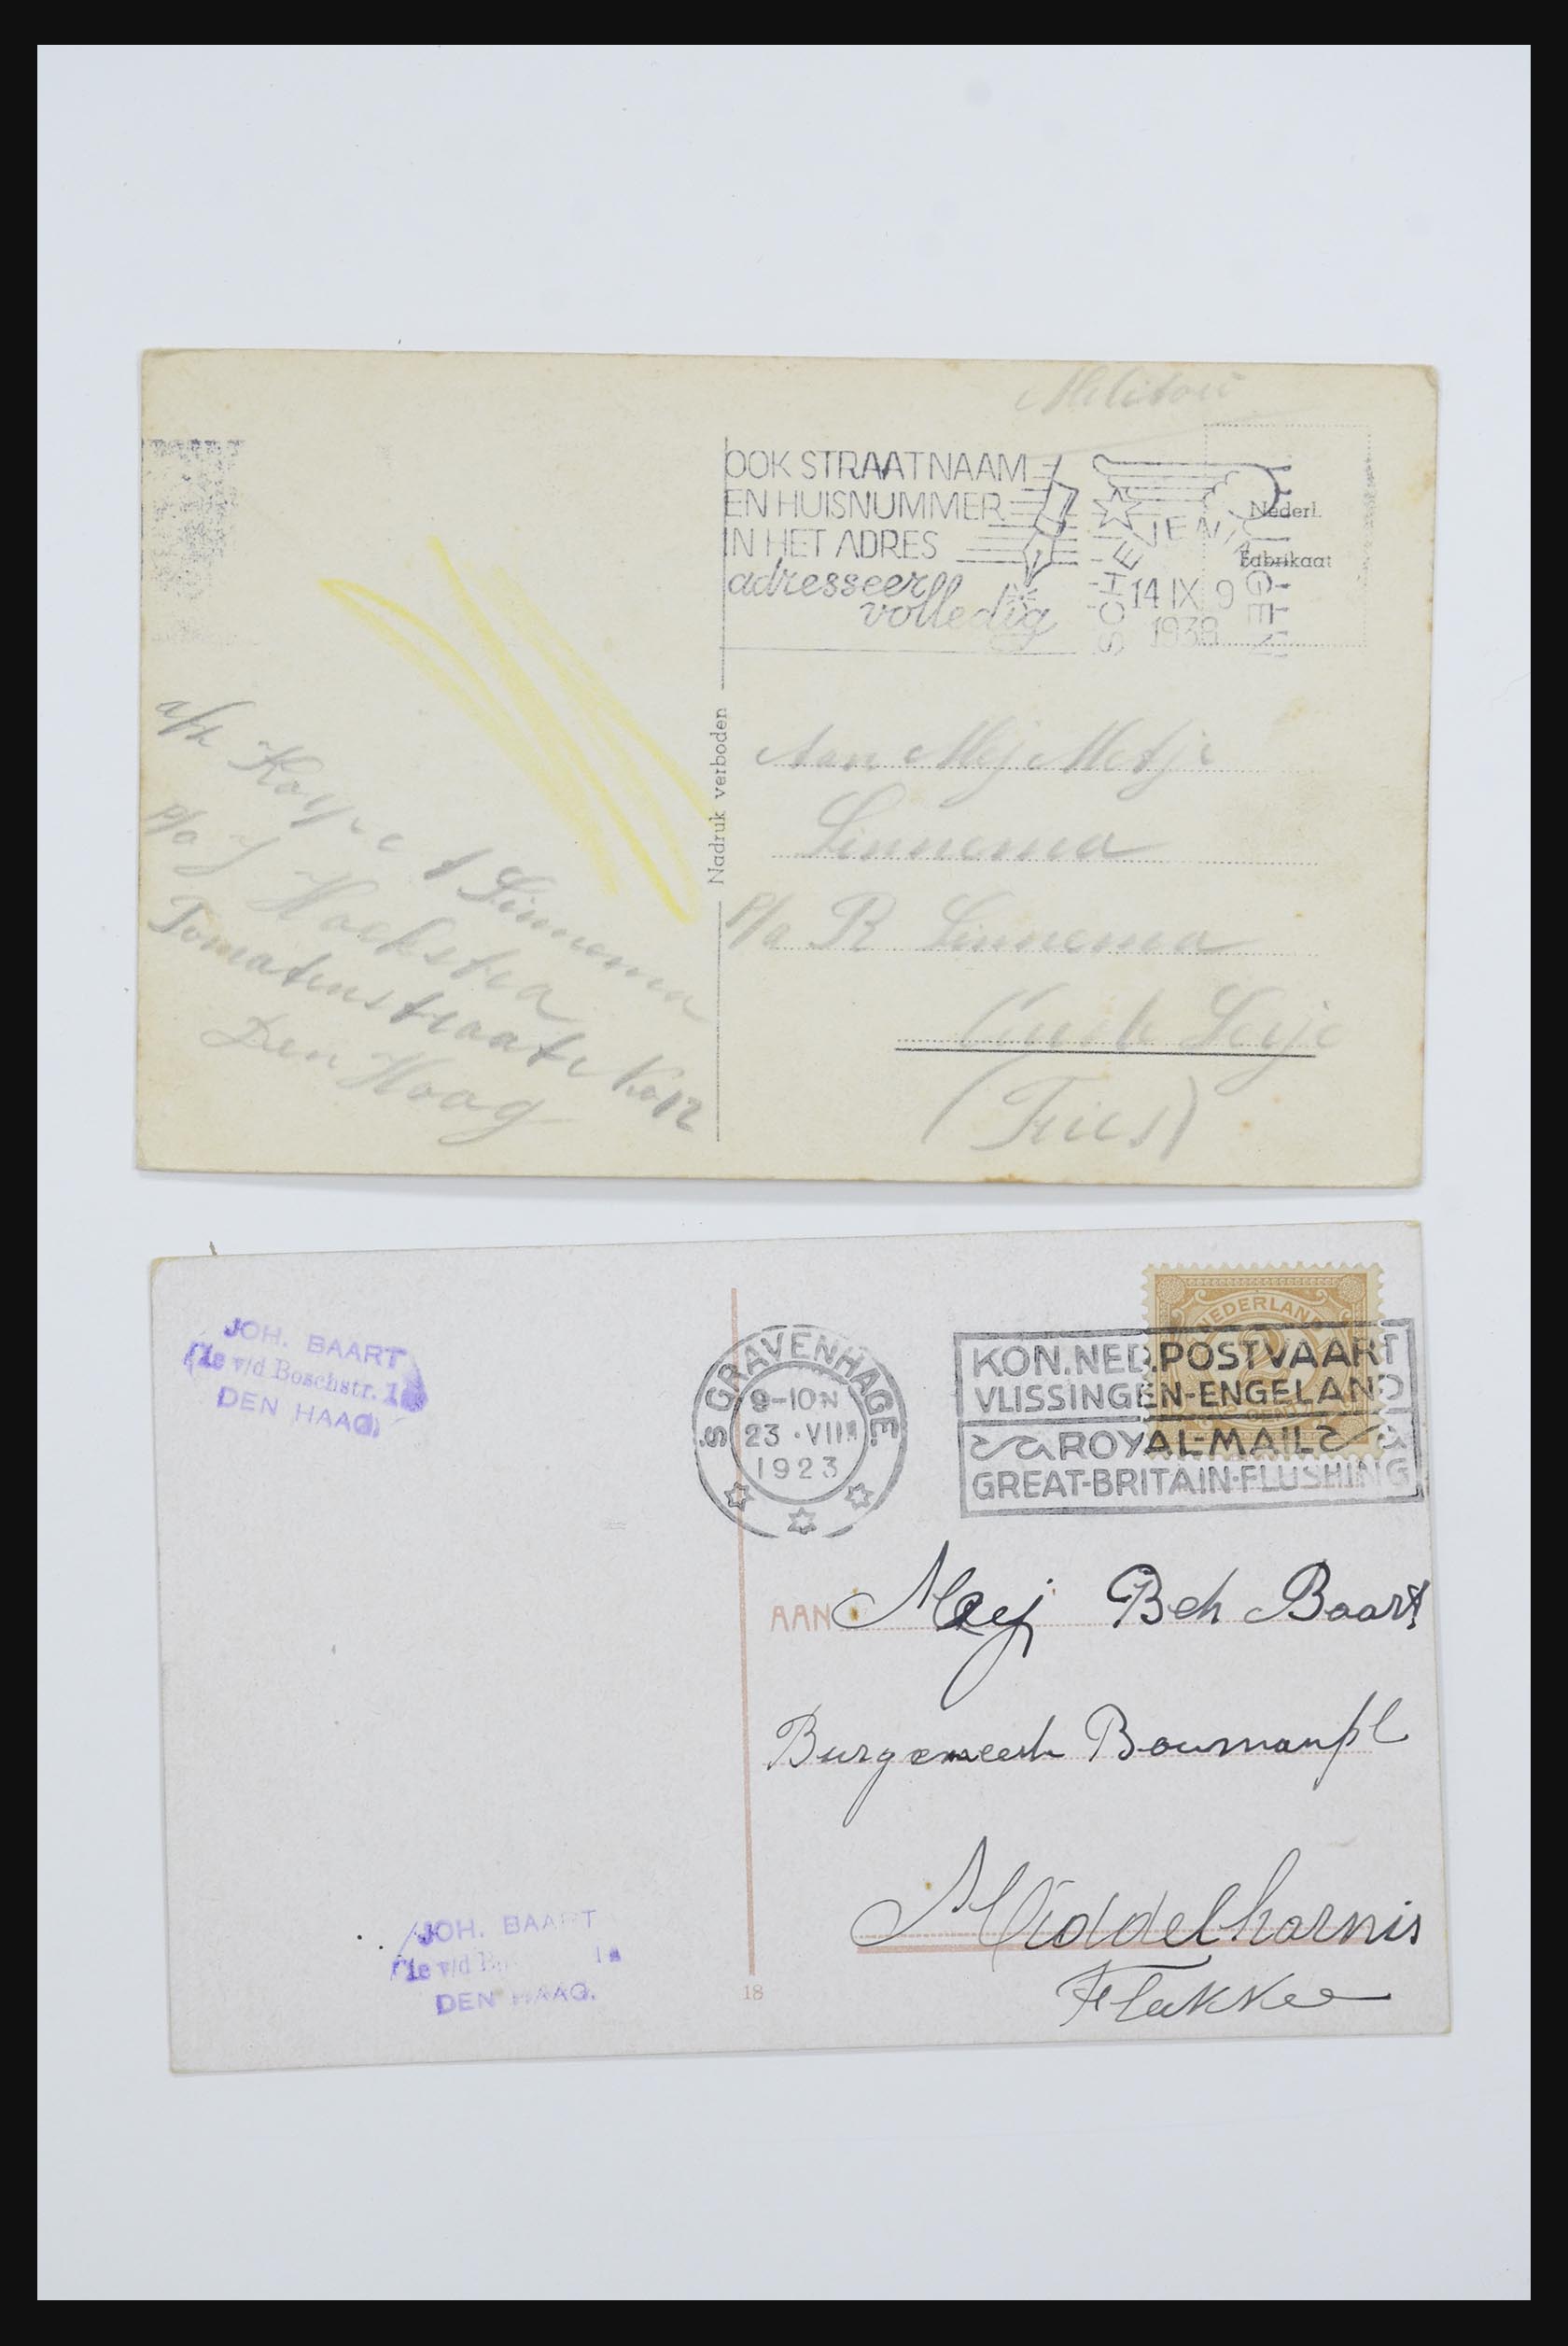 Militair
OOK STRAATNAAM
EN HUISNUMMER
IN HET ADRES
adresseer
volledig
SCHEVENINGEN
14 IX 9
1938
Nederl.
Fabrikaat
Nadruk verboden
Aan Mej Metje
Sinnema
p/a R Sinnema
Oude Leije
(Fries)
Sinnema
p/a J Hoekstra
Tomatenstraat No 12
Den Haag
JOH. BAART
1e v/d Boschstr.
DEN HAAG
'S GRAVENHAGE
9-10N
23 VIII
1923
NEDERLAND
KON.NED.POSTVAART
VLISSINGEN-ENGELAND
ROYAL-MAIL
GREAT-BRITAIN-FLUSHING
AAN Mej Beh Baart
Burgemeest Boumanpl
Middelharnis
Flakkee
JOH. BAART
1e v/d
DEN HAAG.
18